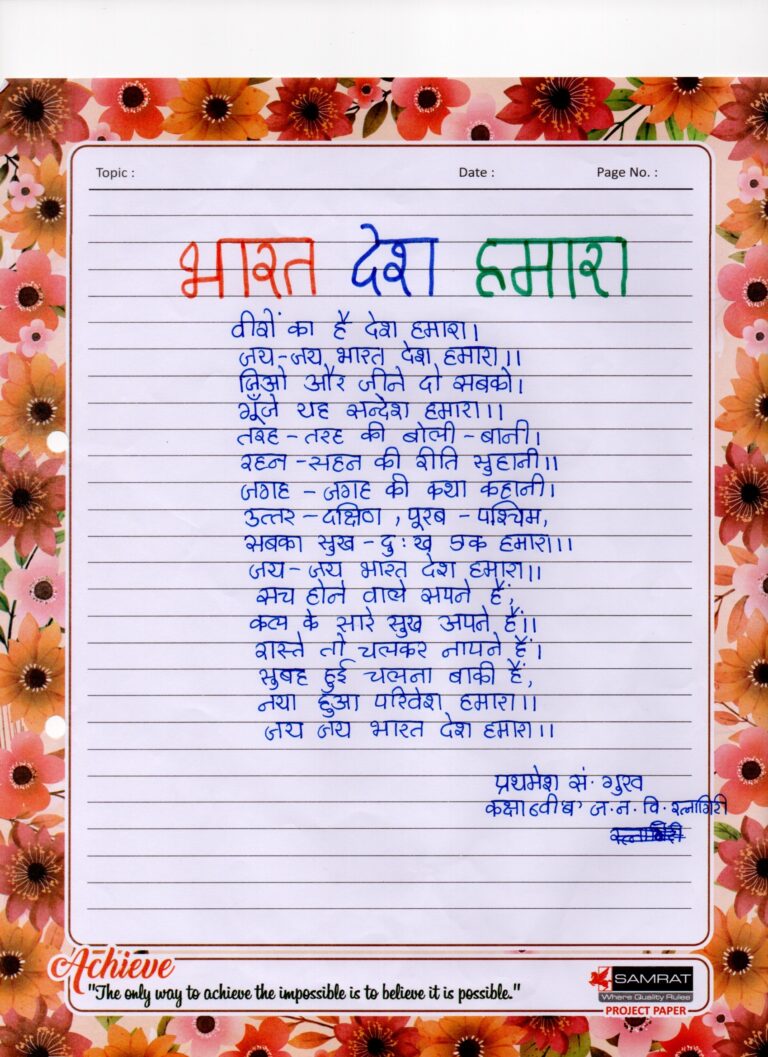 Topic :
Date :
Page No. :
भारत देश हमारा
वीरों का है देश हमारा।
जय-जय भारत देश हमारा।।
जिओ और जीने दो सबको।
गूँजे यह सन्देश हमारा।।
तरह - तरह की बोली - बानी।
रहन - सहन की रीति सुहानी।।
जगह - जगह की कथा कहानी।
उत्तर - दक्षिण , पूरब - पश्चिम,
सबका सुख - दुःख एक हमारा।।
जय- जय भारत देश हमारा।।
सच होने वाले सपने हैं,
कल के सारे सुख अपने हैं।।
रास्ते तो चलकर नापने हैं।
सुबह हुई चलना बाकी हैं,
नया हुआ परिवेश हमारा।।
जय जय भारत देश हमारा।।
प्रथमेश सं. गुरव
कक्षा ज.न.वि. रत्नागिरी
Achieve
"The only way to achieve the impossible is to believe it is possible."
SAMRAT
Where Quality Rules
PROJECT PAPER